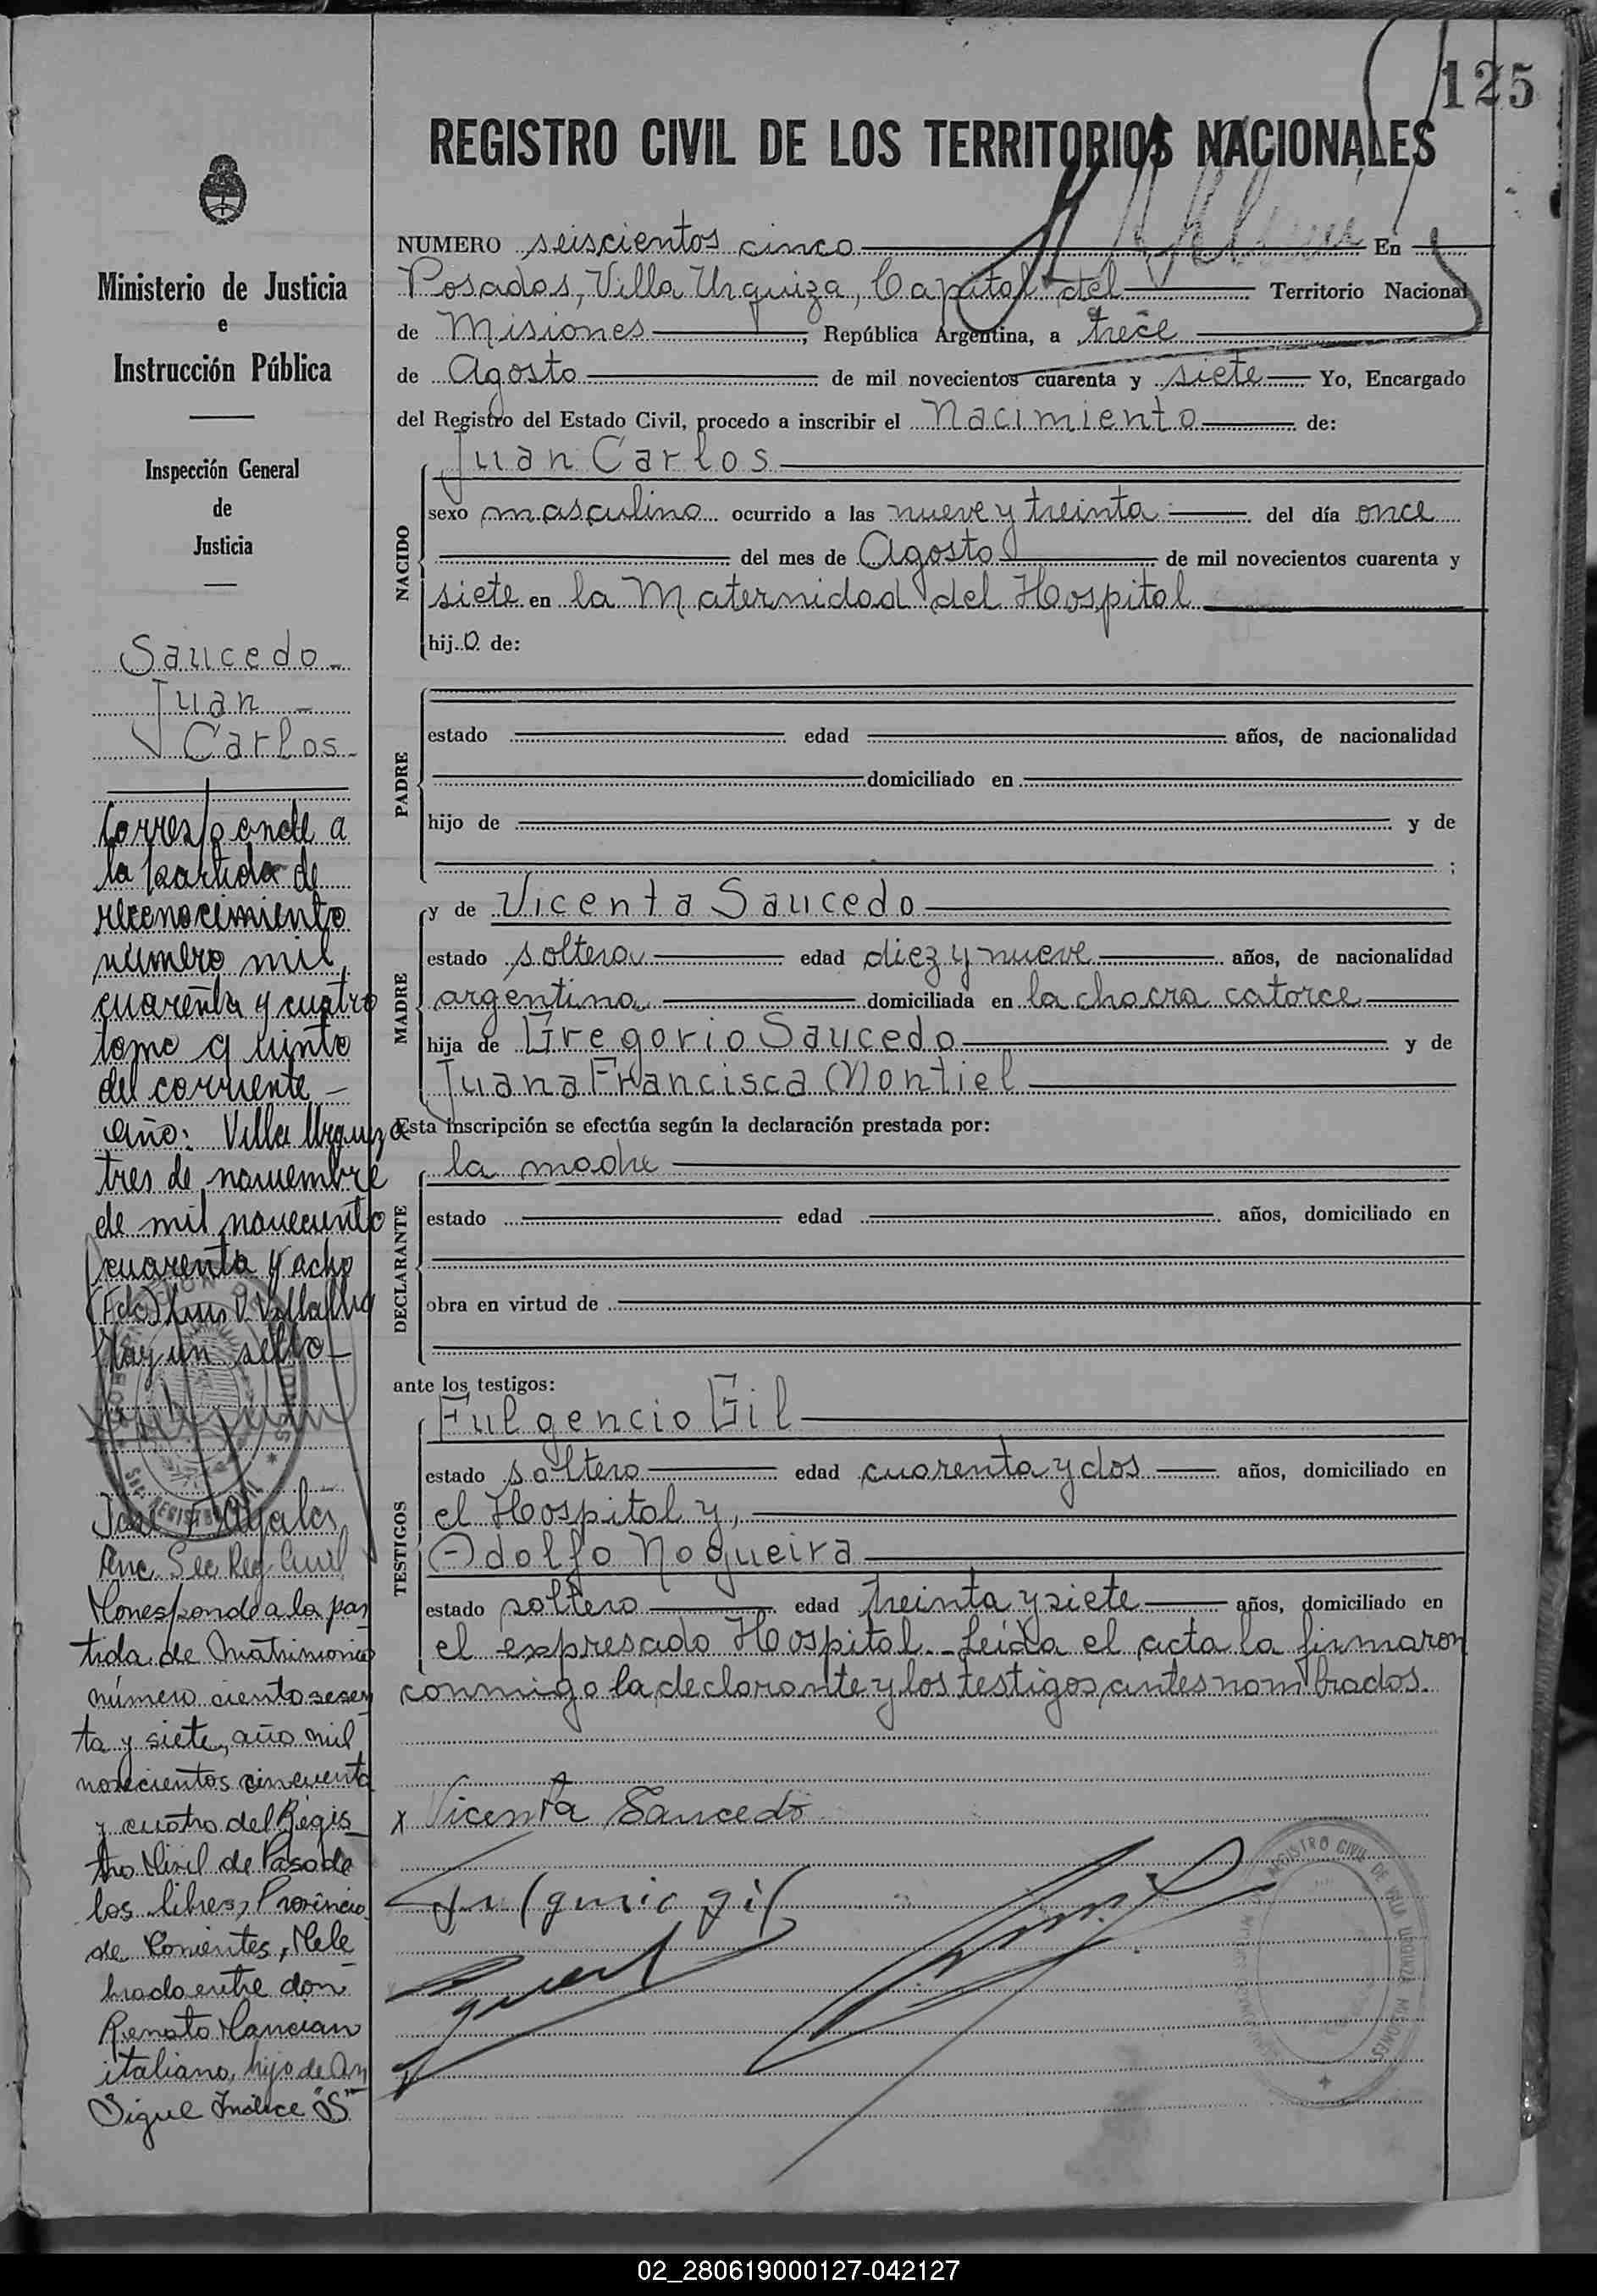 125
REGISTRO CIVIL DE LOS TERRITORIOS NACIONALES
Ministerio de Justicia
e
Instrucción Pública
Inspección General
de
Justicia
Saucedo
Juan
Carlos
Corresponde a
la partida de
reconocimiento
número mil
cuarenta y cuatro
tomo quinto
del corriente
año: Villa Urquiza
tres de noviembre
de mil noveciento
cuarenta y ocho
(Fdo) Luis V. Villalba
Hay un sello
Enc. Sec. Reg. Civil
Corresponde a la par
tida de Matrimonio
número ciento sesen
ta y siete, año mil
novecientos cincuenta
y cuatro del Regis
tro Civil de Paso de
los libres, Provincia
de Corrientes, Cele
brado entre don
Renato Cancian
italiano, hijo de An
Sigue Indice "S"
NUMERO seiscientos cinco En
Posadas, Villa Urquiza, Capital del Territorio Nacional
de Misiones, República Argentina, a trece
de Agosto de mil novecientos cuarenta y siete Yo, Encargado
del Registro del Estado Civil, procedo a inscribir el Nacimiento de:
NACIDO
Juan Carlos
sexo masculino ocurrido a las nueve y treinta del día once
del mes de Agosto de mil novecientos cuarenta y
siete en la Maternidad del Hospital
hij.o de:
PADRE
estado edad años, de nacionalidad
domiciliado en
hijo de y de
;
MADRE
y de Vicenta Saucedo
estado soltera edad diez y nueve años, de nacionalidad
argentina domiciliada en la chacra catorce
hija de Gregorio Saucedo y de
Juana Francisca Montiel
Esta inscripción se efectúa según la declaración prestada por:
DECLARANTE
la madre
estado edad años, domiciliado en
obra en virtud de
ante los testigos:
TESTIGOS
Fulgencio Gil
estado soltero edad cuarenta y dos años, domiciliado en
el Hospital y,
Adolfo Nogueira
estado soltero edad treinta y siete años, domiciliado en
el expresado Hospital. Leída el acta la firmaron
conmigo la declarante y los testigos antes nombrados.
x Vicenta Saucedo
Fulguncio gil
REGISTRO CIVIL DE VILLA URQUIZA MISIONES
02_280619000127-042127